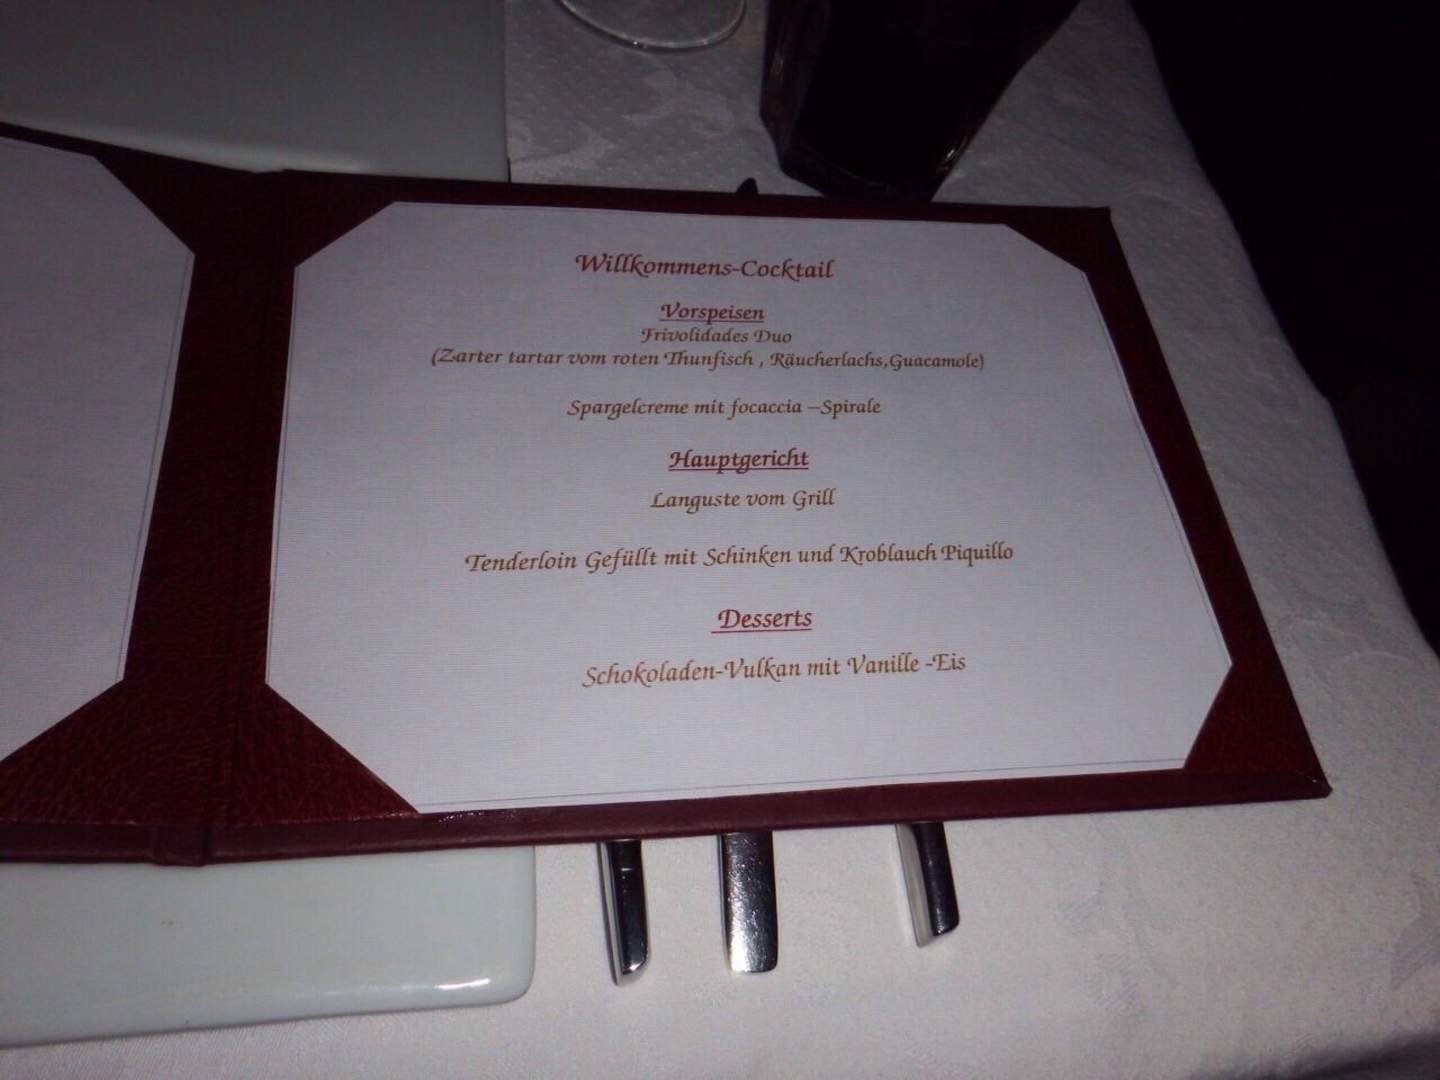 Willkommens-Cocktail
Vorspeisen
Frivolidades Duo
(Zarter tartar vom roten Thunfisch , Räucherlachs,Guacamole)
Spargelcreme mit focaccia –Spirale
Hauptgericht
Languste vom Grill
Tenderloin Gefüllt mit Schinken und Kroblauch Piquillo
Desserts
Schokoladen-Vulkan mit Vanille -Eis